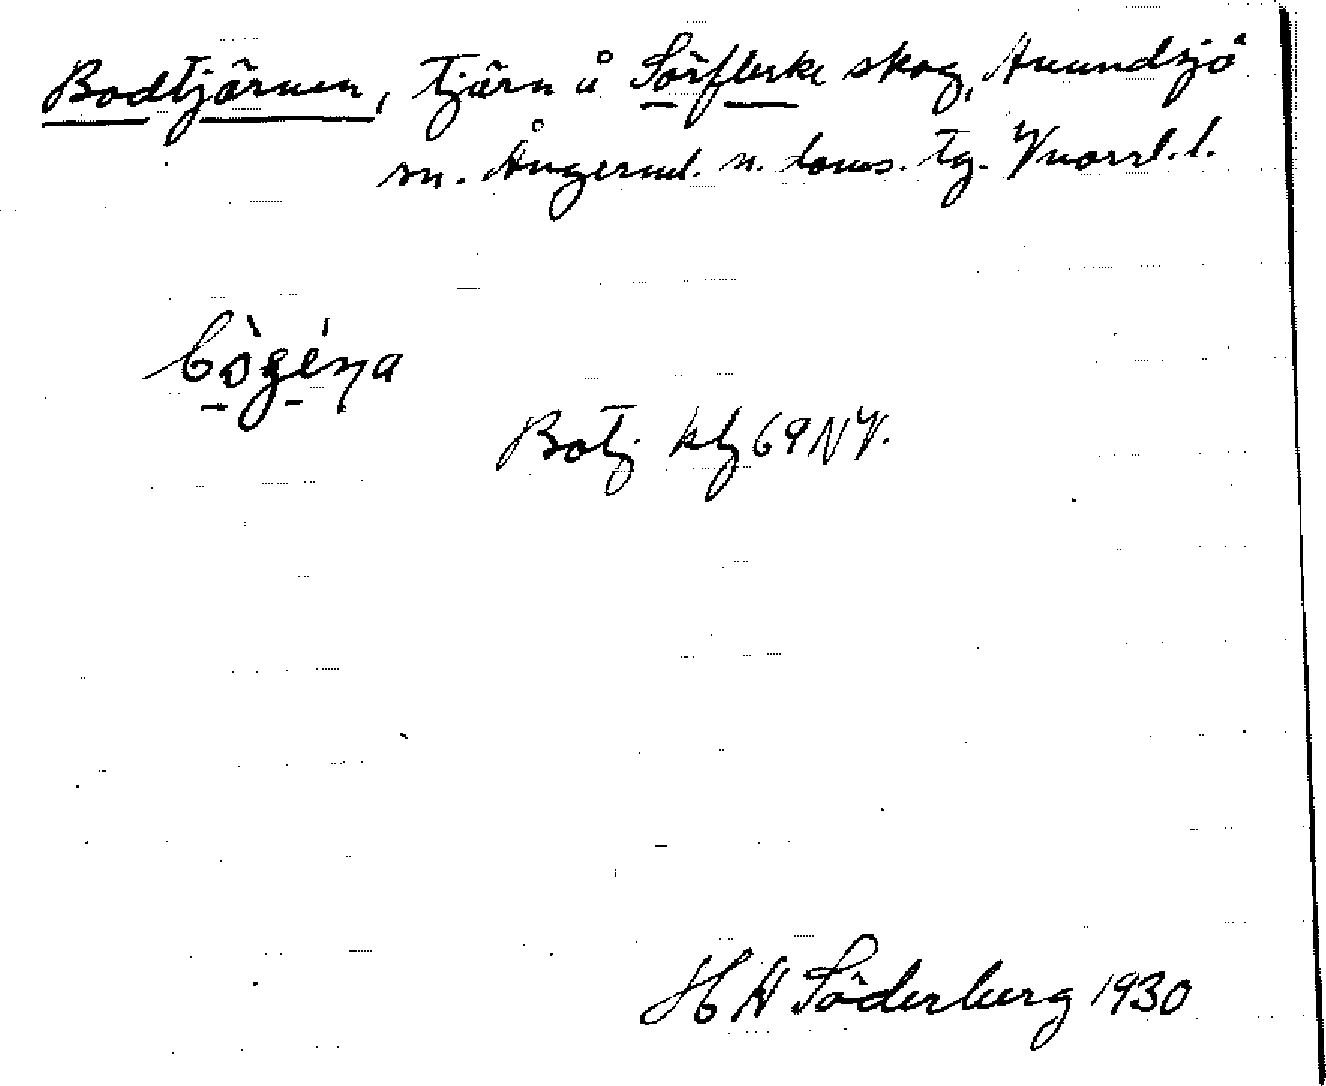 Bodtjärnen, tjärn å Sörflerke skog, Anundsjö
sn. Ångerml. n. doms. tg. Vnorrl. l.
Botj. kbl 69 NV.
H W Söderberg 1930